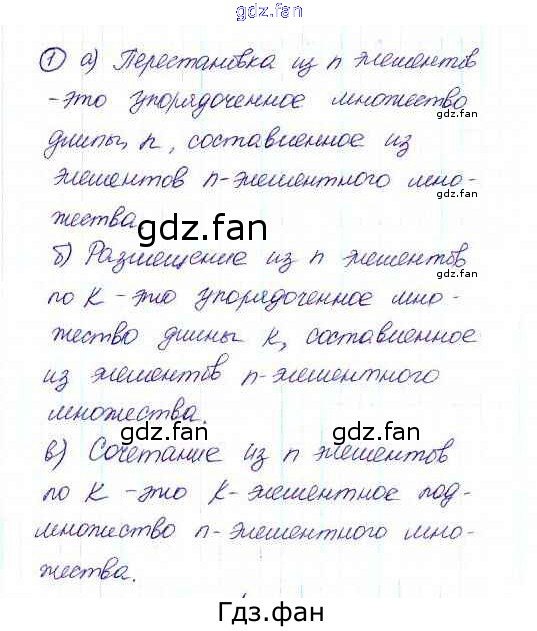 gdz.fan
① а) Перестановка из n элементов
gdz.fan
- это упорядоченное множество
gdz.fan
длины n, составленное из
элементов n-элементного мно-
gdz.fan
жества.
gdz.fan
б) Размещение из n элементов
по k - это упорядоченное мно-
gdz.fan
жество длины k, составленное
из элементов n-элементного
множества.
gdz.fan
gdz.fan
в) Сочетание из n элементов
по k - это k-элементное под-
gdz.fan
множество n-элементного мно-
жества.
Гдз.фан